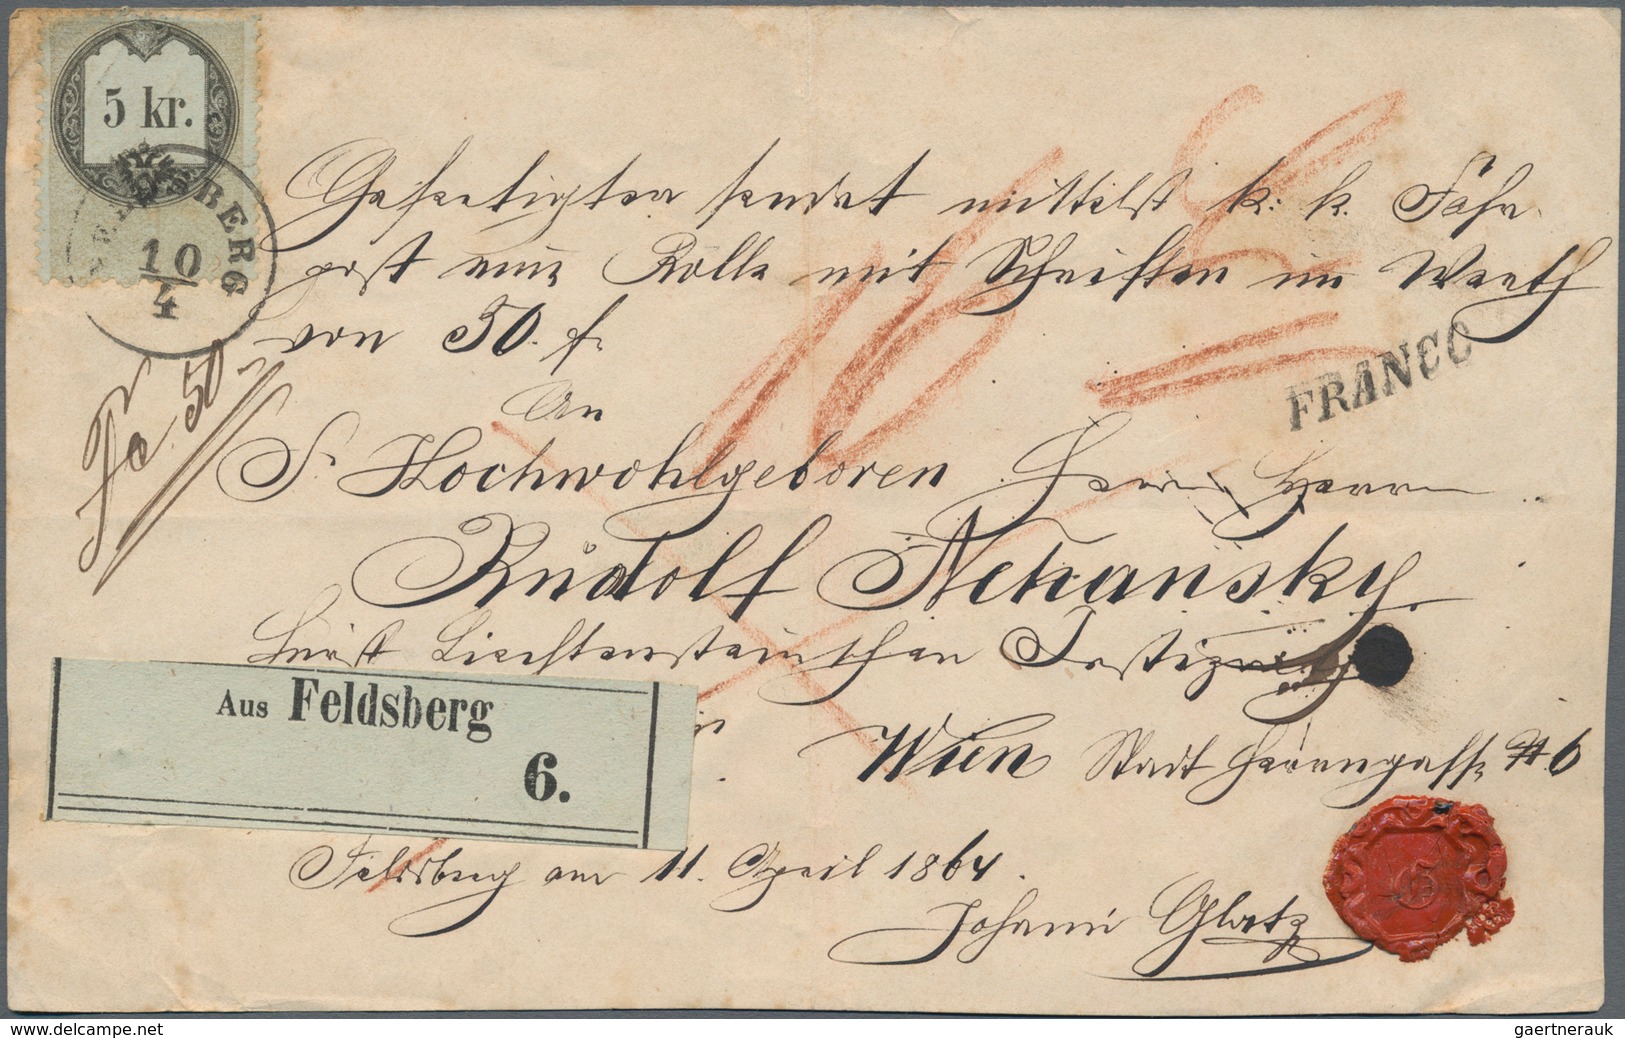 5 kr.
BERG
10
4
Gefertigter sendet mittelst k: k. Fahr
post eine Rolle mit Schriften im Werth
von 50. f.
fco. 50
16
FRANCO
An
Sr Hochwohlgeboren Herrn Herrn
Rudolf Nechansky
Fürst Liechtenstein'schen
Aus Feldsberg
6.
Wien Stadt Herrengasse № 6
Feldsberg am 11. April 1864.
Johann Glatz
www.delcampe.net
gaertnerauk